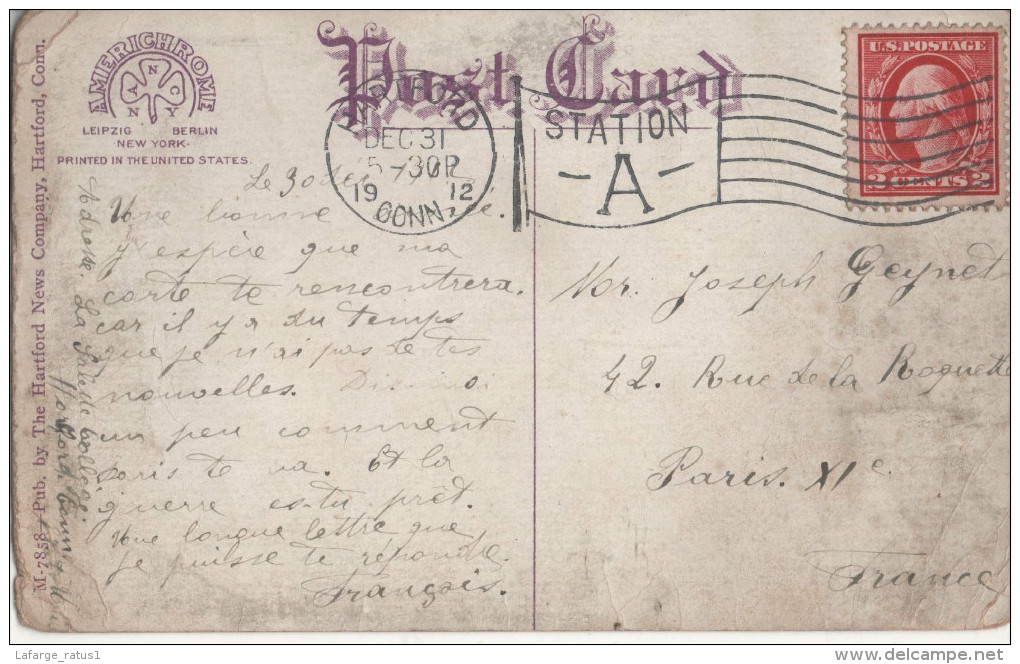 AMERICHROME
NANCY
LEIPZIG BERLIN
NEW YORK.
PRINTED IN THE UNITED STATES.
Post Card
HARTFORD
DEC 31
5-30 P
19 12
CONN.
STATION
-A-
U.S. POSTAGE
2 CENTS 2
M-7858-Pub. by The Hartford News Company, Hartford, Conn.
Adresse. La Salette College
Hartford. Conn.
Le 30 dec
Une bonne
J'espère que ma
carte te rencontrera.
car il y a du temps
que je n'ai pas de tes
nouvelles. Dis-moi
un peu comment
Paris te va. Et la
guerre es-tu prêt.
Une longue lettre que
je puisse te répondre.
François.
Mor. Joseph Geynet
42. Rue de la Roquette
Paris. XIe
France
Lafarge_ratus1
www.delcampe.net